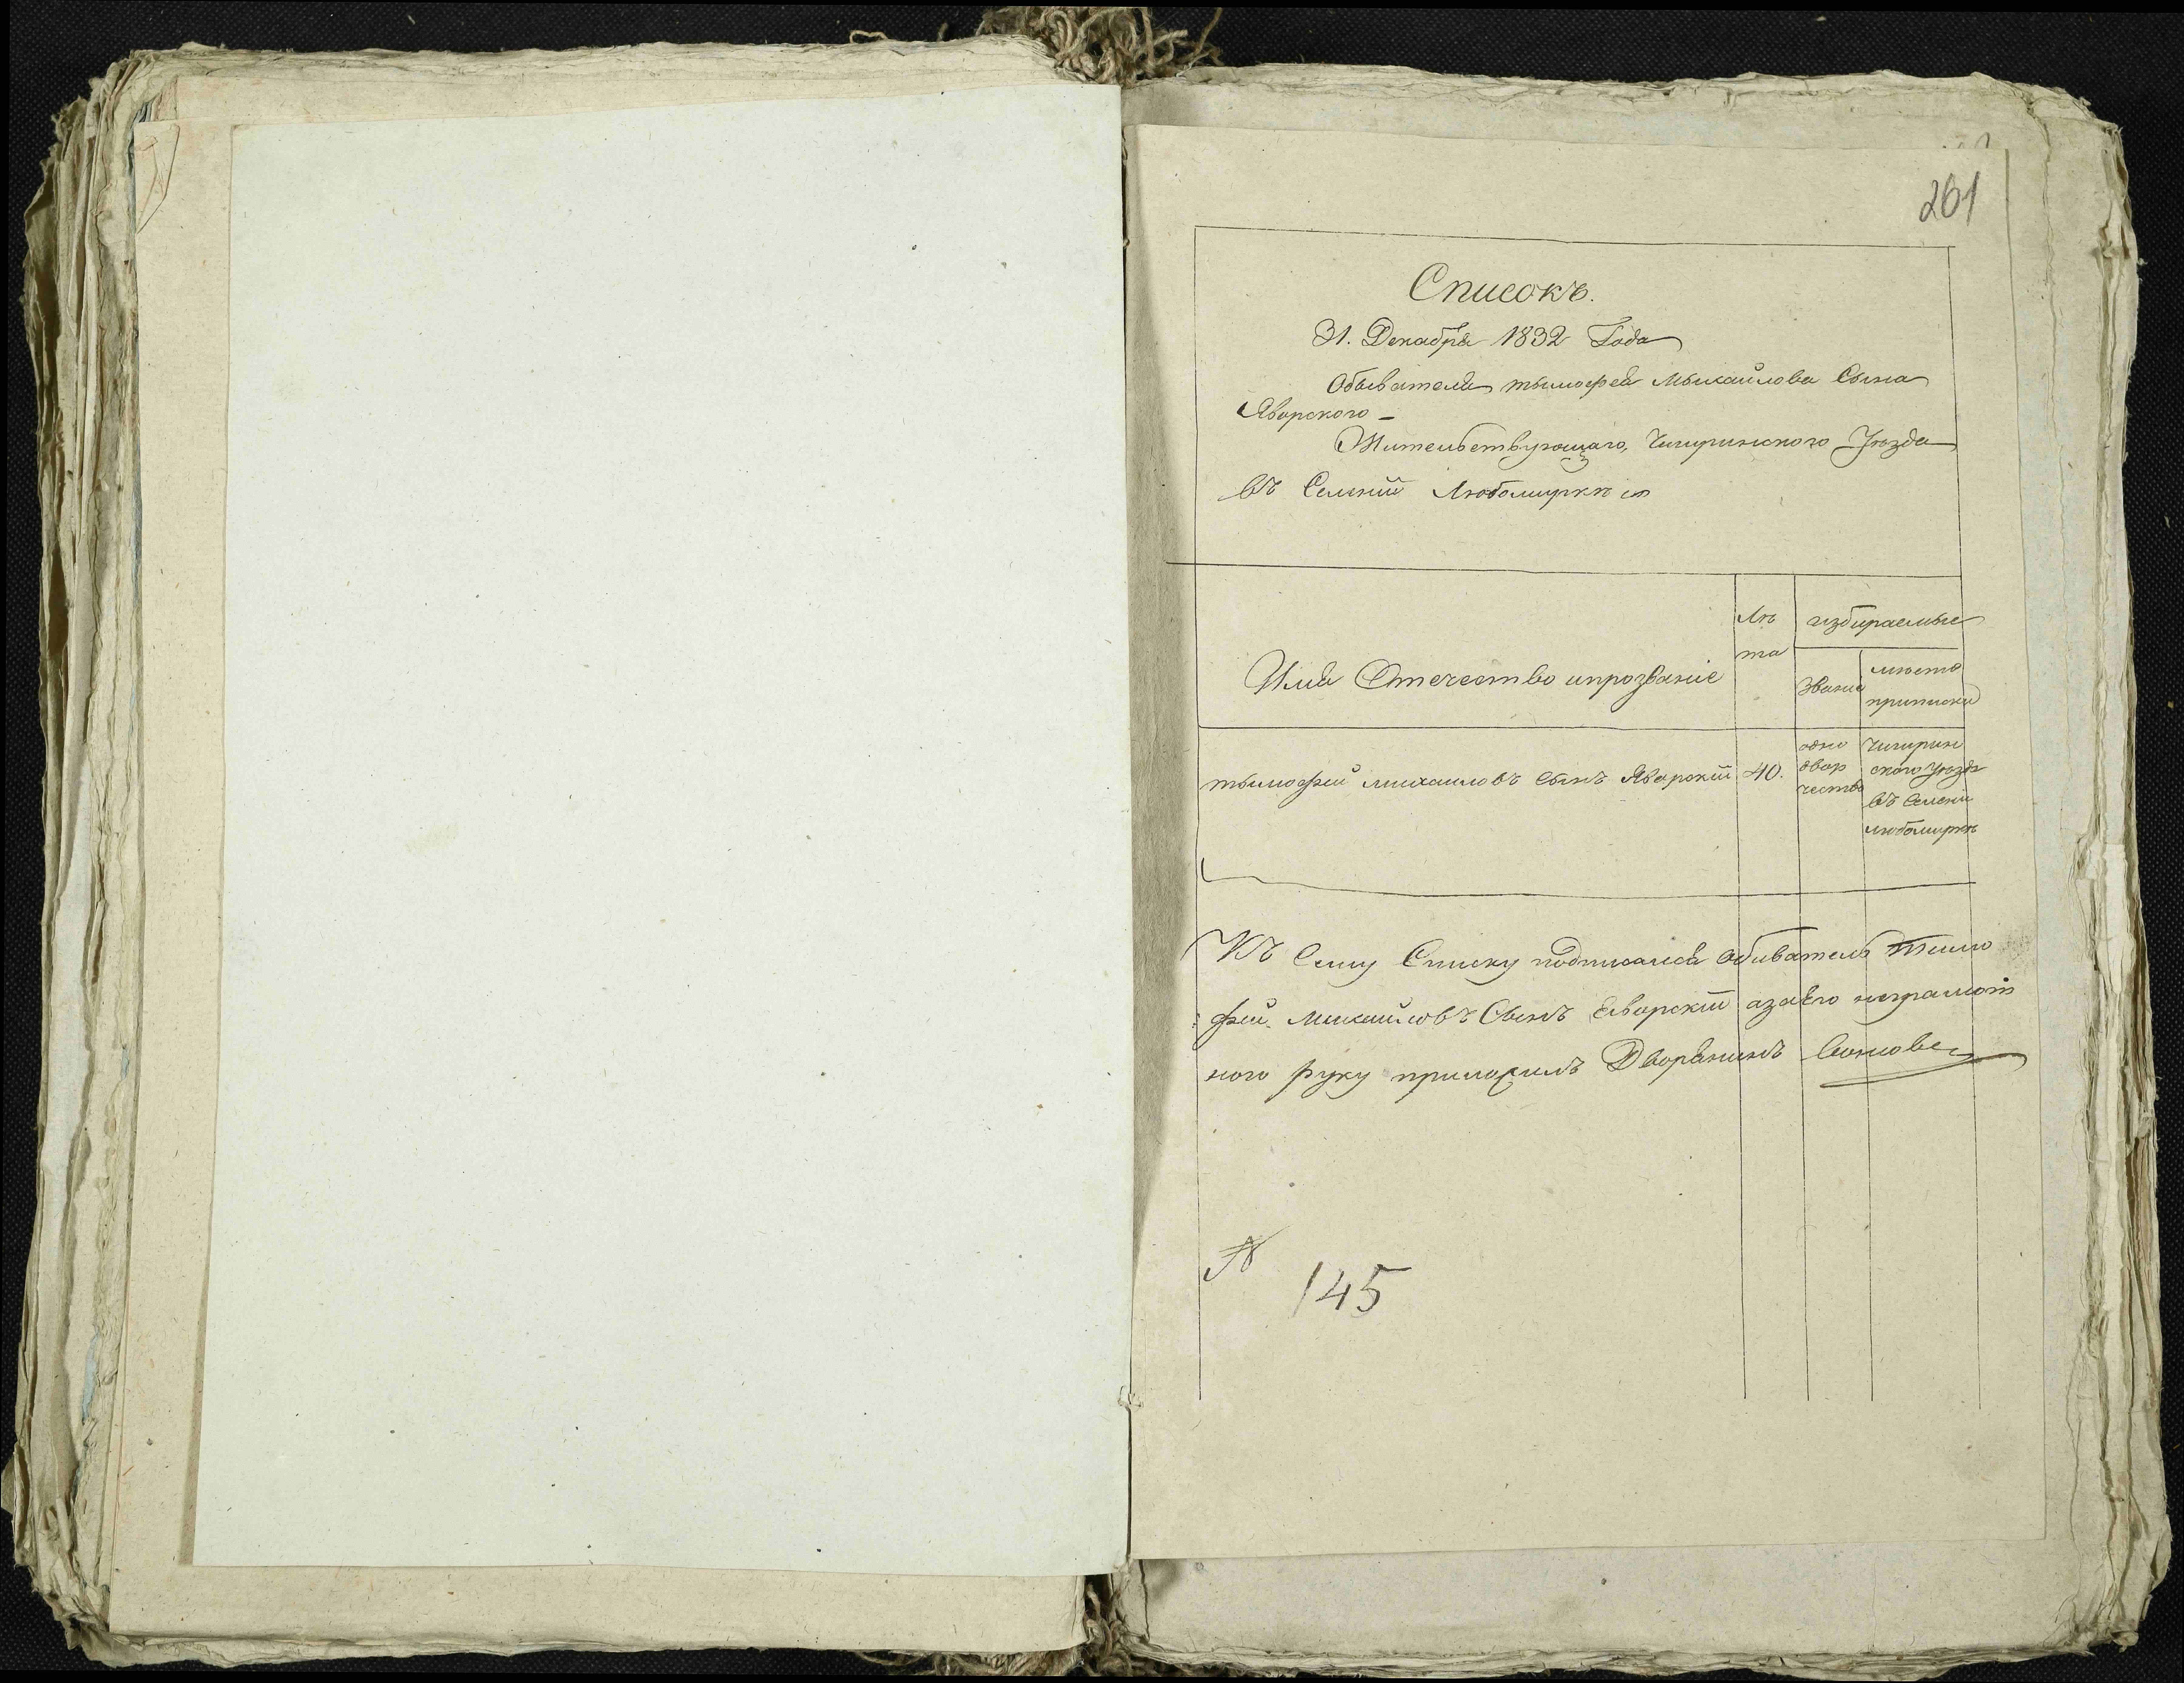 261
Списокъ.
31. Декабря 1832 Года
Обывателя тымофея Мыхайлова Сына
Яворского –
Жительствующаго, Чигиринского Уѣзда
въ Селений Любомиркѣ
Лѣ
та
избираемые
Имя Отечество ипрозваніе
Званіе
мѣсто
приписки
тымофей михаиловъ Сынъ Яворскій
40.
одно
двор
чество
Чигирин
ского Уѣзда
въ Селеніи
любомирки
Къ Сему Списку подписался Обиватель Тимо
фей Михайловъ Сынъ Еворскій азаЕго неграмот
ного руку приложилъ Дворянинъ
№ 145